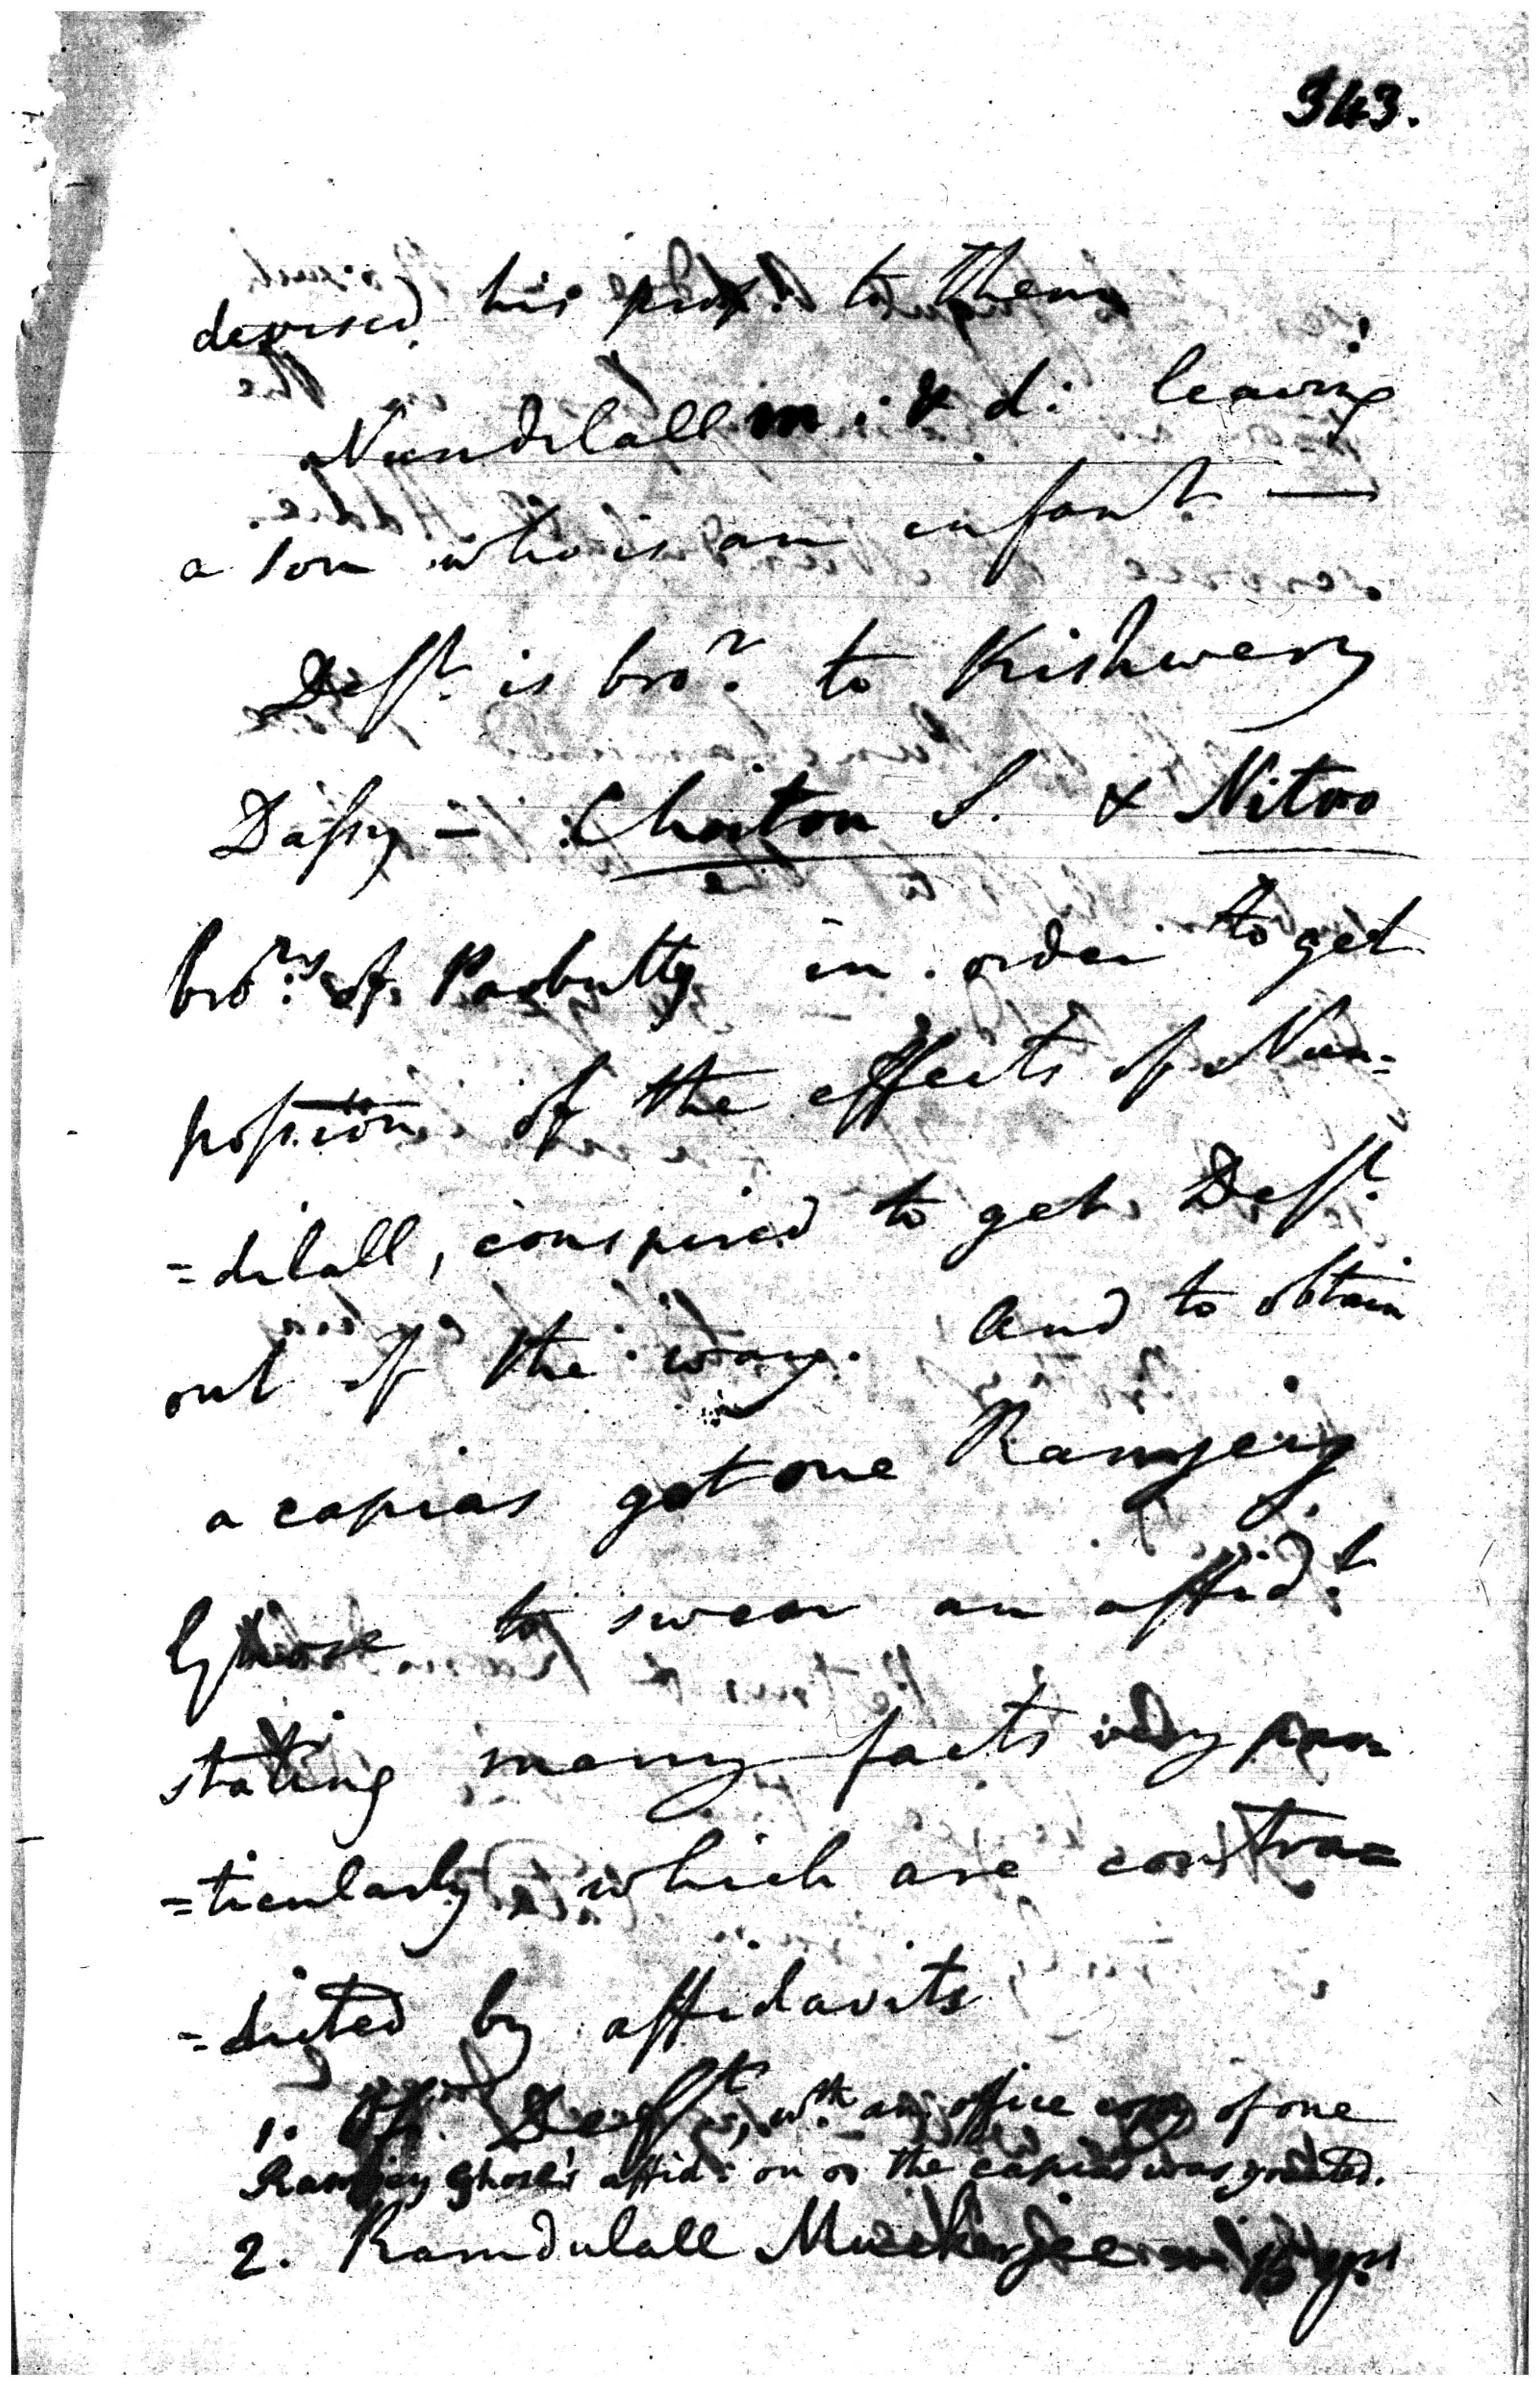 343.
devised his to them
Nundilall m: & d: leaving
a son who is an infant —
Deft. is bror. to Kishwery
Dassy — Choiton S. & Nitoo
brors. of Parbutty in order to get
possion of the effects of Nun=
=dilall, conspired to get Deft.
out of the way. And to obtain
a capias got one Ramjery
Ghose to swear an affidt.
stating many facts very par=
=ticularly, which are contra=
=dicted by affidavits
1. Of Deft, wth. an office copy of one
Ramjay Ghose's affidt: on wh the capias was granted.
2. Ramdulall Muckerjee